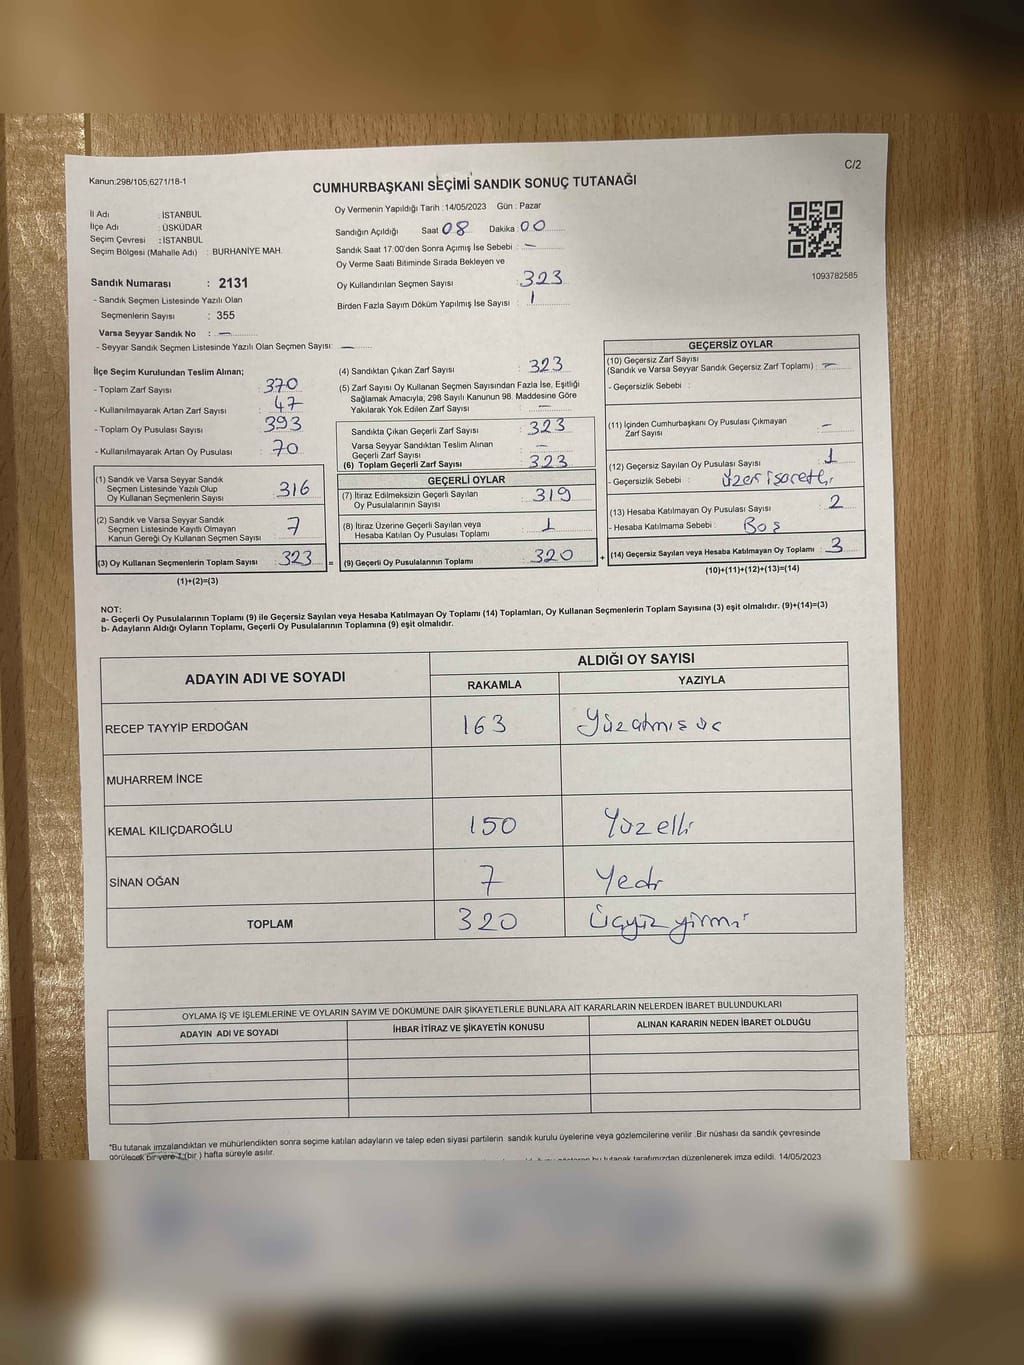 C/2
Kanun:298/105,6271/18-1
CUMHURBAŞKANI SEÇİMİ SANDIK SONUÇ TUTANAĞI
İl Adı : İSTANBUL
İlçe Adı : ÜSKÜDAR
Seçim Çevresi : İSTANBUL
Seçim Bölgesi (Mahalle Adı) : BURHANİYE MAH.
Sandık Numarası : 2131
- Sandık Seçmen Listesinde Yazılı Olan
Seçmenlerin Sayısı : 355
Varsa Seyyar Sandık No : —
- Seyyar Sandık Seçmen Listesinde Yazılı Olan Seçmen Sayısı: —
Oy Vermenin Yapıldığı Tarih : 14/05/2023 Gün : Pazar
Sandığın Açıldığı Saat 08 Dakika : 00
Sandık Saat 17:00'den Sonra Açımış İse Sebebi : —
Oy Verme Saati Bitiminde Sırada Bekleyen ve
Oy Kullandırılan Seçmen Sayısı : 323
Birden Fazla Sayım Döküm Yapılmış İse Sayısı : 1
1093782585
İlçe Seçim Kurulundan Teslim Alınan;
- Toplam Zarf Sayısı : 370
- Kullanılmayarak Artan Zarf Sayısı : 47
- Toplam Oy Pusulası Sayısı : 393
- Kullanılmayarak Artan Oy Pusulası : 70
(1) Sandık ve Varsa Seyyar Sandık
Seçmen Listesinde Yazılı Olup
Oy Kullanan Seçmenlerin Sayısı : 316
(2) Sandık ve Varsa Seyyar Sandık
Seçmen Listesinde Kayıtlı Olmayan
Kanun Gereği Oy Kullanan Seçmen Sayısı : 7
(3) Oy Kullanan Seçmenlerin Toplam Sayısı : 323 =
(1)+(2)=(3)
(4) Sandıktan Çıkan Zarf Sayısı : 323
(5) Zarf Sayısı Oy Kullanan Seçmen Sayısından Fazla İse, Eşitliği
Sağlamak Amacıyla, 298 Sayılı Kanunun 98. Maddesine Göre
Yakılarak Yok Edilen Zarf Sayısı : —
Sandıkta Çıkan Geçerli Zarf Sayısı : 323
Varsa Seyyar Sandıktan Teslim Alınan
Geçerli Zarf Sayısı : —
(6) Toplam Geçerli Zarf Sayısı : 323
GEÇERLİ OYLAR
(7) İtiraz Edilmeksizin Geçerli Sayılan
Oy Pusulalarının Sayısı : 319
(8) İtiraz Üzerine Geçerli Sayılan veya
Hesaba Katılan Oy Pusulası Toplamı : 1
(9) Geçerli Oy Pusulalarının Toplamı : 320 +
GEÇERSİZ OYLAR
(10) Geçersiz Zarf Sayısı
(Sandık ve Varsa Seyyar Sandık Geçersiz Zarf Toplamı) : —
- Geçersizlik Sebebi :
(11) İçinden Cumhurbaşkanı Oy Pusulası Çıkmayan
Zarf Sayısı : —
(12) Geçersiz Sayılan Oy Pusulası Sayısı : 1
- Geçersizlik Sebebi : üzeri işaretli
(13) Hesaba Katılmayan Oy Pusulası Sayısı : 2
- Hesaba Katılmama Sebebi : Boş
(14) Geçersiz Sayılan veya Hesaba Katılmayan Oy Toplamı : 3
(10)+(11)+(12)+(13)=(14)
NOT:
a- Geçerli Oy Pusulalarının Toplamı (9) ile Geçersiz Sayılan veya Hesaba Katılmayan Oy Toplamı (14) Toplamları, Oy Kullanan Seçmenlerin Toplam Sayısına (3) eşit olmalıdır. (9)+(14)=(3)
b- Adayların Aldığı Oyların Toplamı, Geçerli Oy Pusulalarının Toplamına (9) eşit olmalıdır.
ADAYIN ADI VE SOYADI ALDIĞI OY SAYISI
RAKAMLA YAZIYLA
RECEP TAYYİP ERDOĞAN 163 Yüzatmış üç
MUHARREM İNCE
KEMAL KILIÇDAROĞLU 150 Yüzelli
SİNAN OĞAN 7 Yedi
TOPLAM 320 Üçyüz yirmi
OYLAMA İŞ VE İŞLEMLERİNE VE OYLARIN SAYIM VE DÖKÜMÜNE DAİR ŞİKAYETLERLE BUNLARA AİT KARARLARIN NELERDEN İBARET BULUNDUKLARI
ADAYIN ADI VE SOYADI İHBAR İTİRAZ VE ŞİKAYETİN KONUSU ALINAN KARARIN NEDEN İBARET OLDUĞU
*Bu tutanak imzalandıktan ve mühürlendikten sonra seçime katılan adayların ve talep eden siyasi partilerin sandık kurulu üyelerine veya gözlemcilerine verilir .Bir nüshası da sandık çevresinde
görülecek bir yere 1 (bir ) hafta süreyle asılır.
bu tutanak tarafımızdan düzenlenerek imza edildi. 14/05/2023